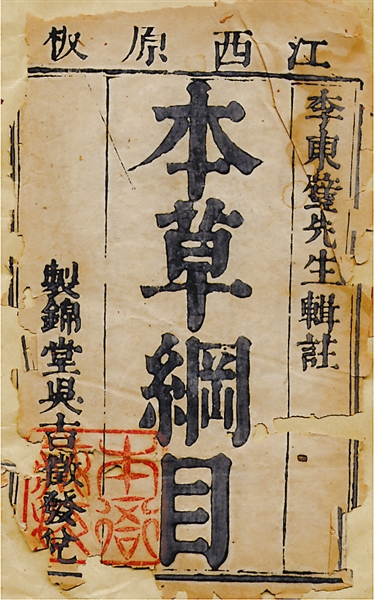 江西原板
李東璧先生輯註
本草綱目
製錦堂吳吉徵發兌
本衙